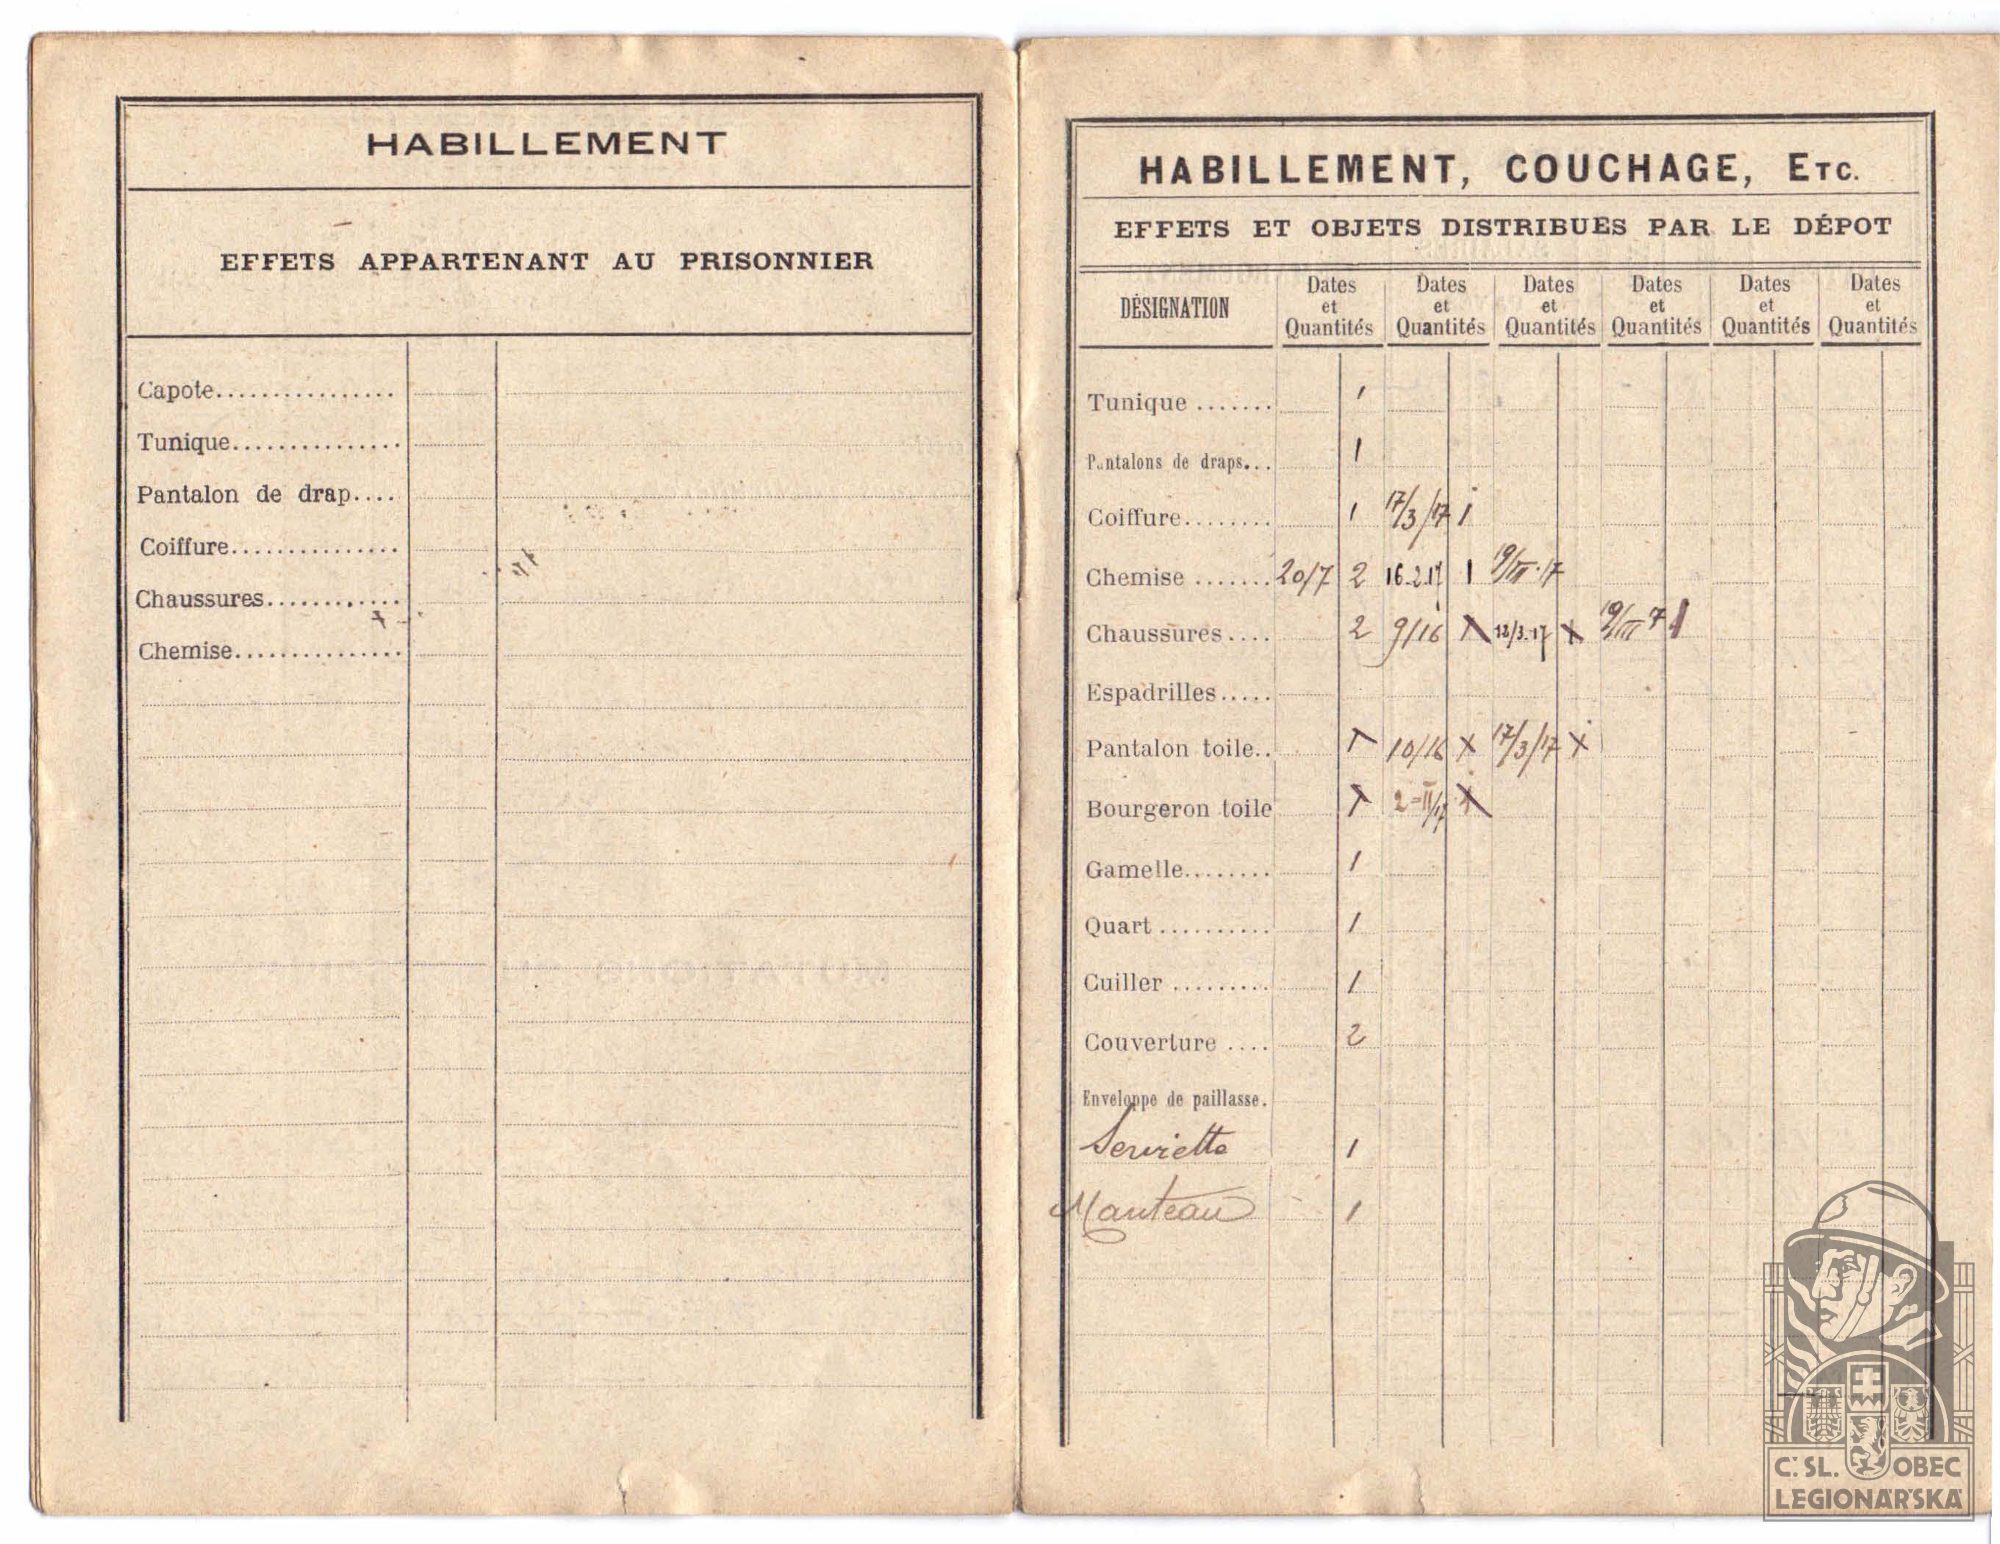 HABILLEMENT
EFFETS APPARTENANT AU PRISONNIER
Capote................
Tunique...............
Pantalon de drap....
Coiffure...............
Chaussures............
Chemise...............
HABILLEMENT, COUCHAGE, ETC.
EFFETS ET OBJETS DISTRIBUÉS PAR LE DÉPOT
DÉSIGNATION
Dates et Quantités
Dates et Quantités
Dates et Quantités
Dates et Quantités
Dates et Quantités
Dates et Quantités
Tunique ....... 1
Pantalons de draps... 1
Coiffure........ 1 17/3/17 1
Chemise ....... 20/7 2 16.2.17 1 19/III.17
Chaussures.... 2 9/16 1 12/3.17 x 19/III 7 1
Espadrilles.....
Pantalon toile.. 1 10/16 x 17/3/17 x
Bourgeron toile 1 2-II/17 x
Gamelle........ 1
Quart .......... 1
Cuiller ......... 1
Couverture .... 2
Enveloppe de paillasse.
Serviette 1
Manteau 1
Č. SL. OBEC
LEGIONÁŘSKÁ